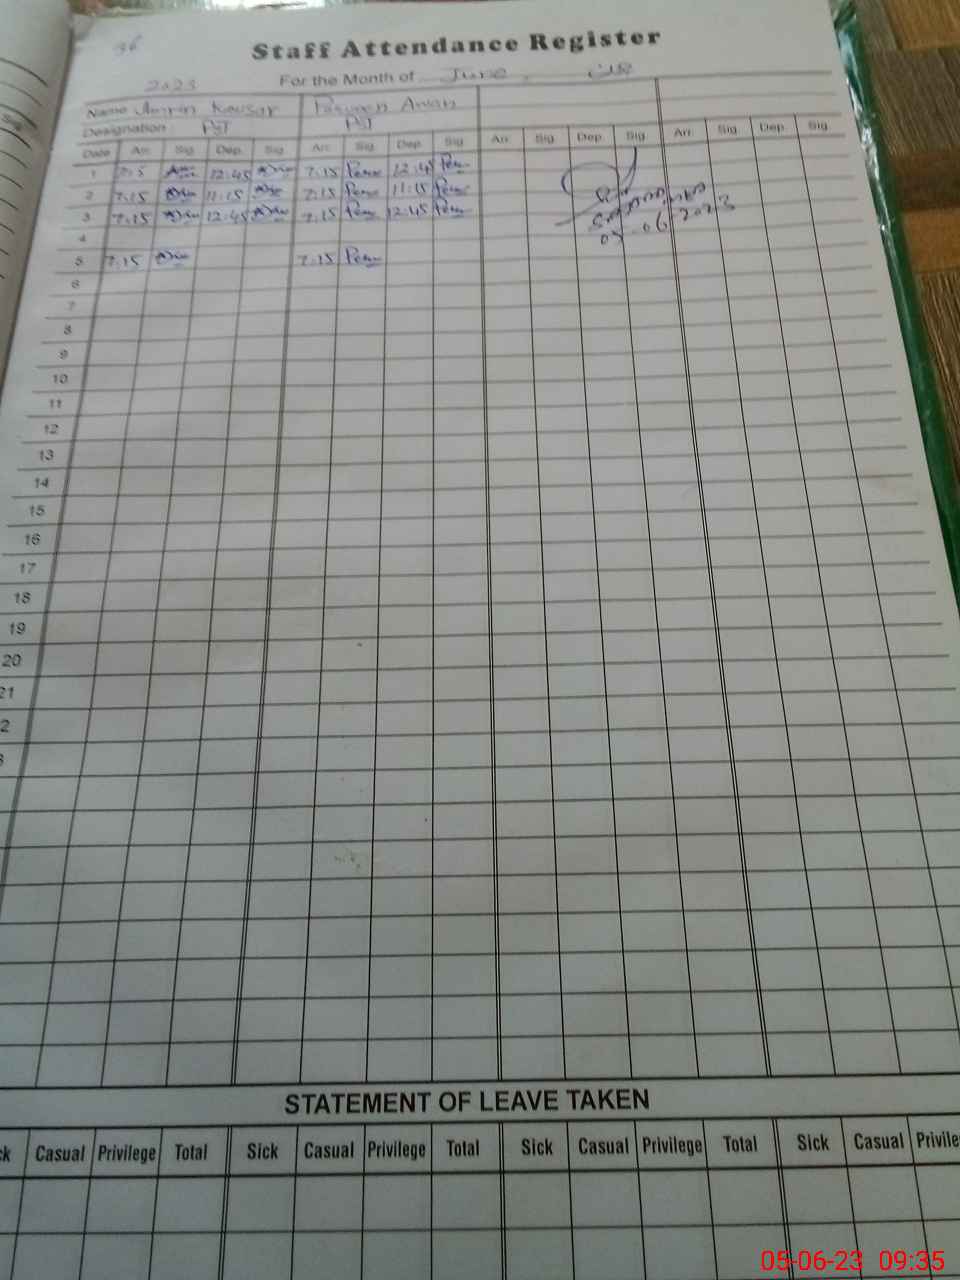 36
Staff Attendance Register
2023 For the Month of June,
Name Kausar Awan
Designation PST PST
Date Arr. Sig. Dep. Sig. Arr. Sig. Dep. Sig. Arr. Sig. Dep. Sig. Arr. Sig. Dep. Sig.
1 12.45 7.15 12.45
2 7.15 11.15 7.15 11.15
3 7.15 12.45 7.15 12.45
4 05.06.2023
5 7.15 7.15
6
7
8
9
10
11
12
13
14
15
16
17
18
19
20
21
2
3
STATEMENT OF LEAVE TAKEN
ck Casual Privilege Total Sick Casual Privilege Total Sick Casual Privilege Total Sick Casual Privile
05-06-23 09:35